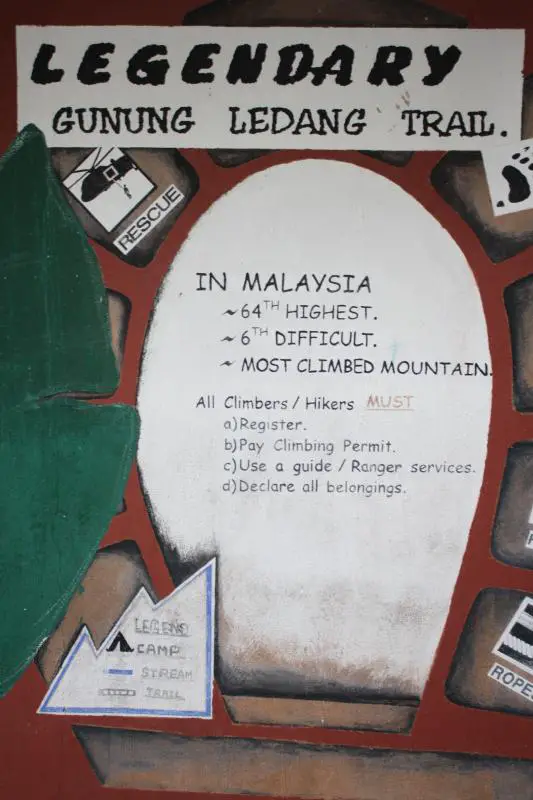 LEGENDARY
GUNUNG LEDANG TRAIL.
RESCUE
IN MALAYSIA
~64TH HIGHEST.
~6TH DIFFICULT.
~ MOST CLIMBED MOUNTAIN.
All Climbers / Hikers MUST
a)Register.
b)Pay Climbing Permit.
c)Use a guide / Ranger services.
d)Declare all belongings.
LEGEND
CAMP
STREAM
TRAIL
ROPE